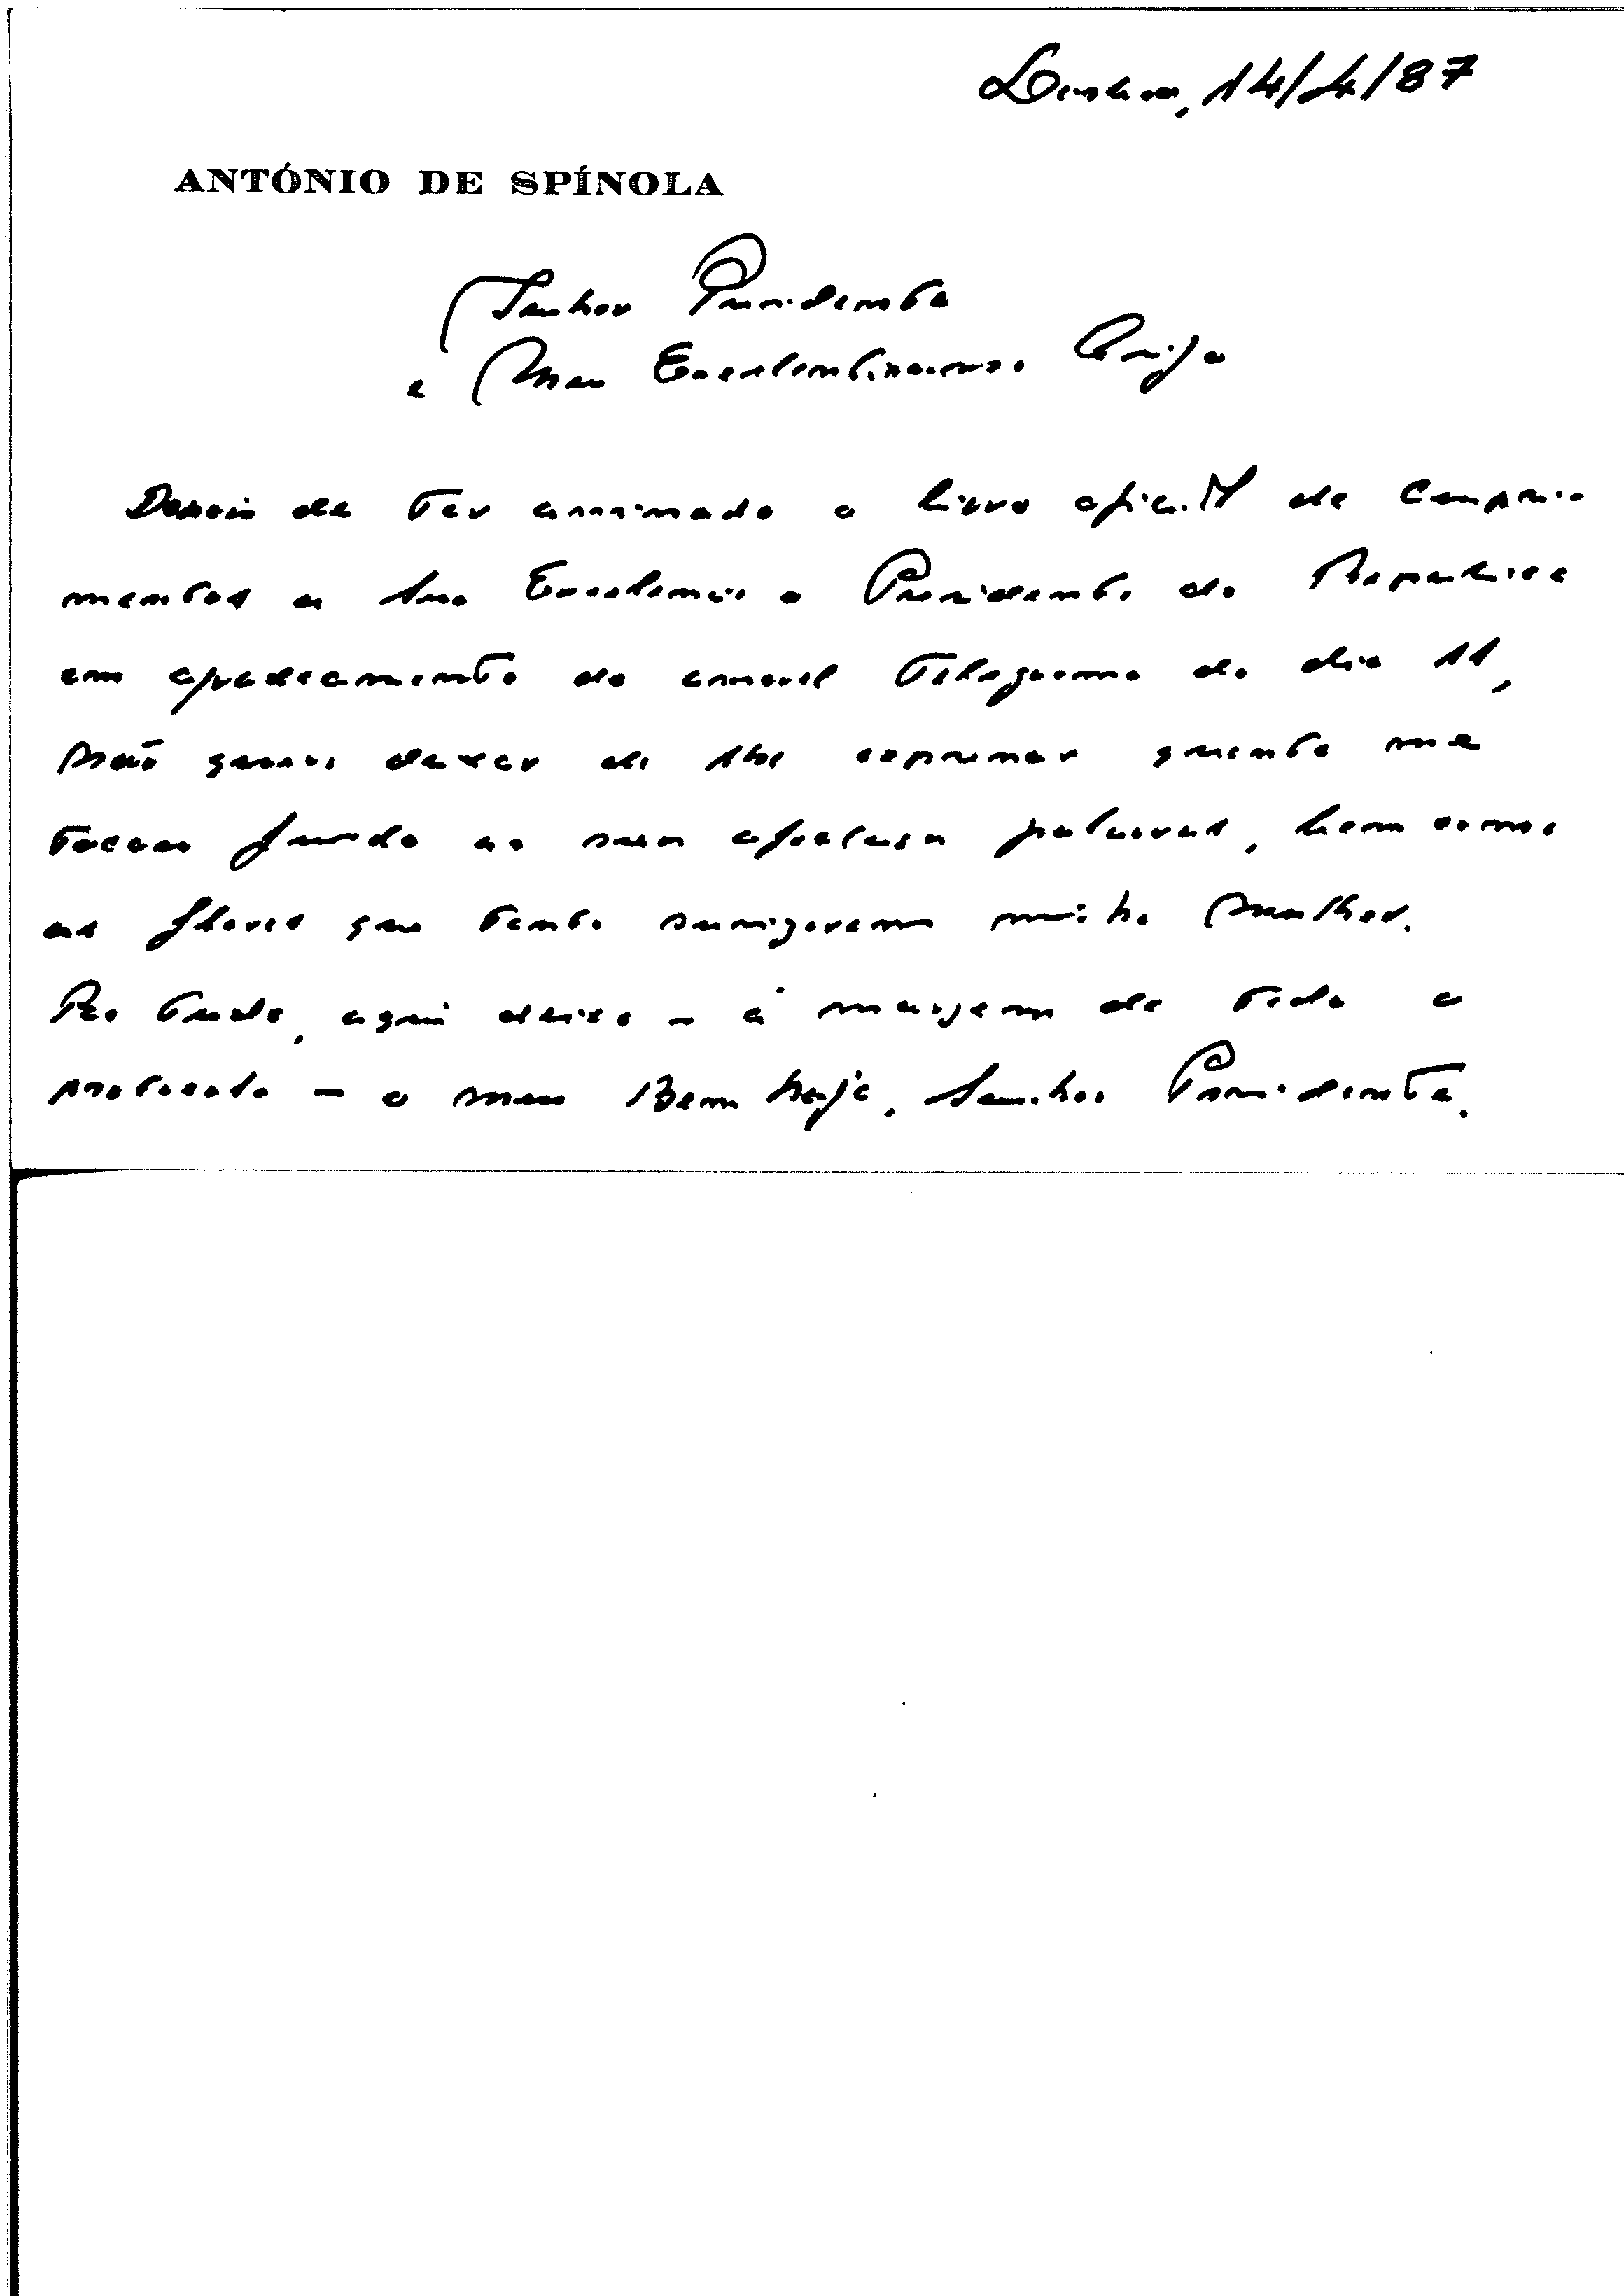 Lisboa, 14/4/87
ANTÓNIO DE SPÍNOLA
Senhor Presidente
e Meu Excelentíssimo Amigo
Depois de ter assinado o livro oficial de cumpri-
mentos a Sua Excelencia o Presidente da Republica
em agradecimento do amavel telegrama do dia 11,
não quero deixar de lhe exprimir quanto me
tocou fundo as suas palavras, bem como
as flores que tanto minha Mulher.
Por tudo, aqui deixo - á margem de todo o
protocolo - o meu Bem haja, Senhor Presidente.